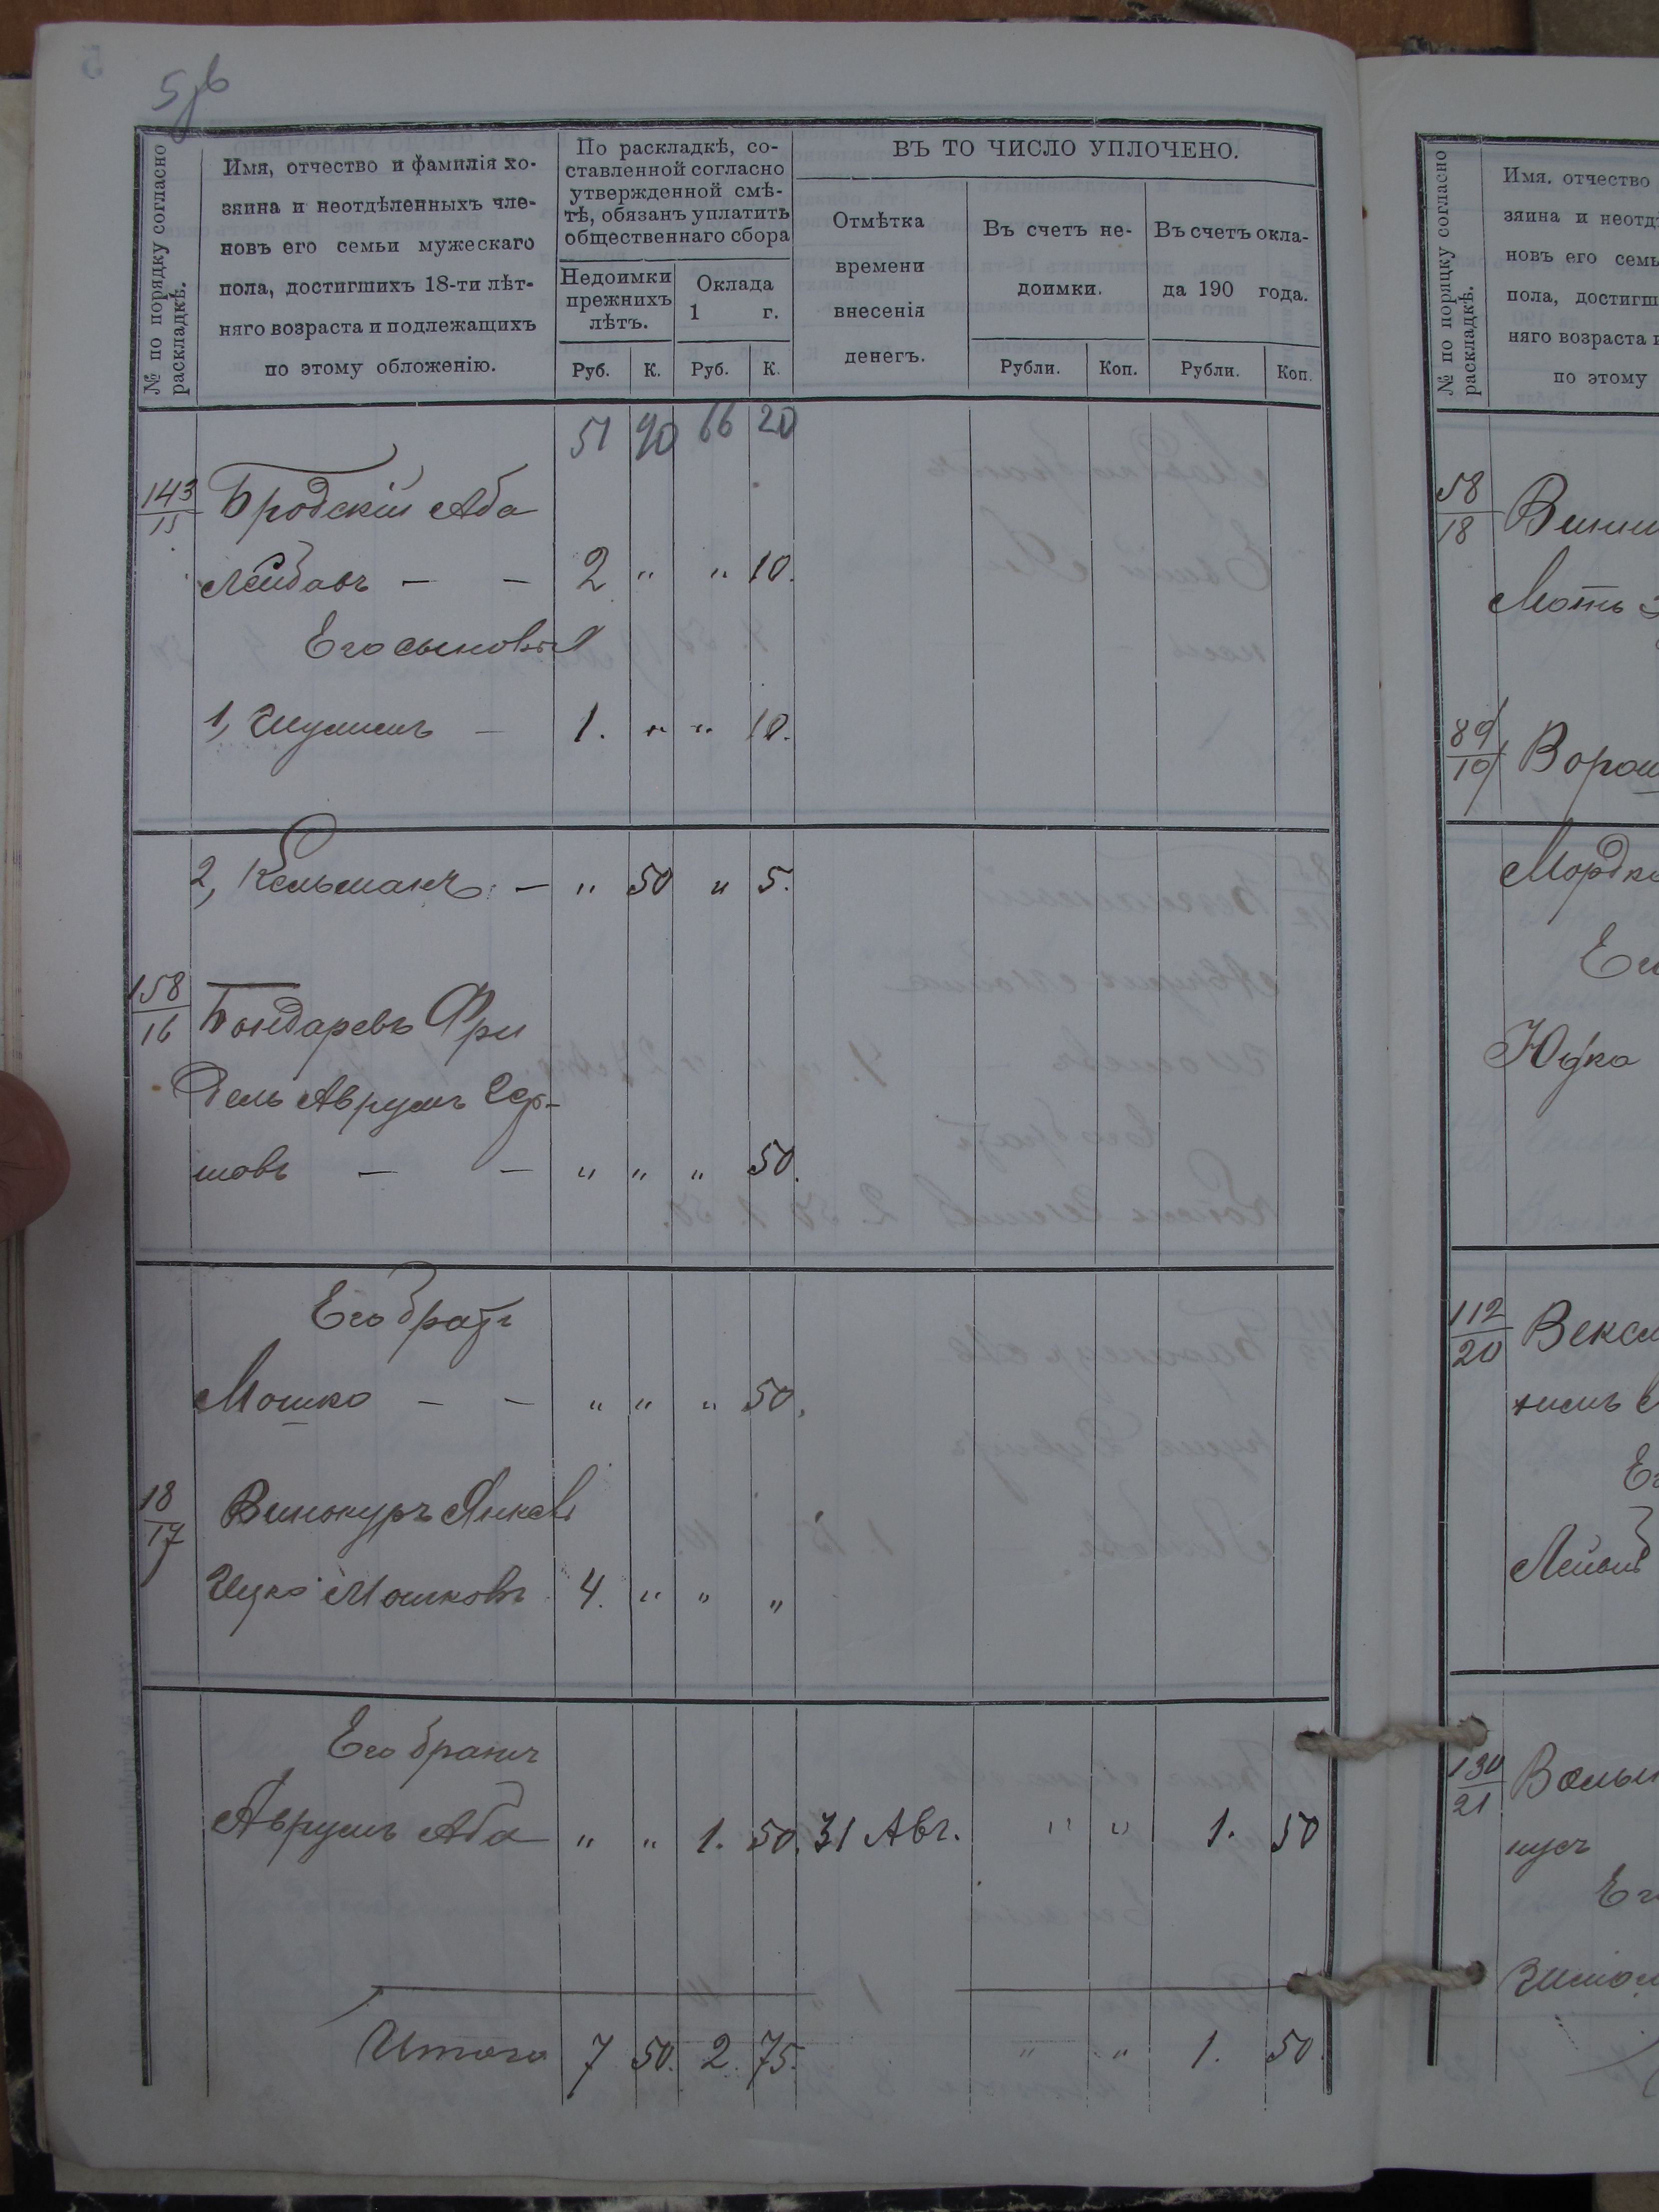 5
5 об
№ по порядку согласно раскладкѣ.
Имя, отчество и фамилія хо-
зяина и неотдѣленныхъ чле-
новъ его семьи мужескаго
пола, достигшихъ 18-ти лѣт-
няго возраста и подлежащихъ
по этому обложенію.
По раскладкѣ, со-
ставленной согласно
утвержденной смѣ-
тѣ, обязанъ уплатить
общественнаго сбора
Недоимки
прежнихъ
лѣтъ.
Оклада
1 г.
Руб. К. Руб. К.
ВЪ ТО ЧИСЛО УПЛОЧЕНО.
Отмѣтка
времени
внесенія
денегъ.
Въ счетъ не-
доимки.
Въ счетъ окла-
да 190 года.
Рубли. Коп. Рубли. Коп.
51 90 66 20
143/15 Бродскій Аба
Лейбовъ — — 2 „ „ 10.
Его сыновья
1, Шулимъ — 1. „ „ 10.
2, Кельманъ — „ 50 „ 5.
158/16 Бондаревъ Фри
дель Аврумъ
мовъ — — „ „ „ 50.
Его братъ
Мошко — — „ „ „ 50.
18/17 Винокуръ Янкель
Ицко Мошковъ 4. „ „ „
Его братъ
Аврумъ Аба „ „ 1. 50. 31 Авг. „ „ 1. 50
Итого 7 50. 2. 75. „ „ 1. 50.
№ по порядку согласно раскладкѣ.
Имя. отчество
зяина и неотд
новъ его семь
пола, достигш
няго возраста и
по этому
58/18 Винни
Моть
89/19 Ворон
Мордко
Его
Юдко
112/20 Вексл
Ег
Лейб
130/21 Вольп
нусъ
Ег